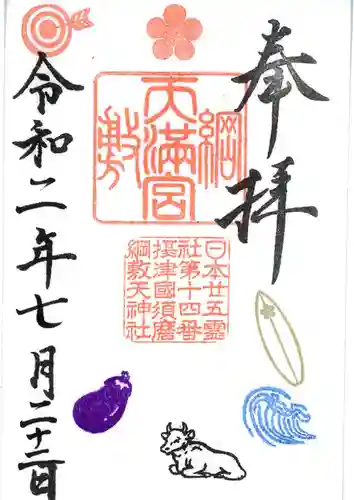 奉拝
綱敷天満宮
日本廿五霊
社第十四番
摂津國須磨
綱敷天神社
令和二年七月二十二日